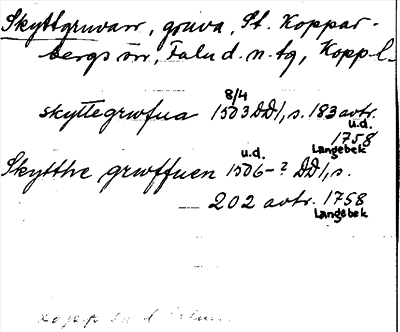 Skyttgruvan, gruva, St. Koppar-
bergs sn, Falu d.n.tg, Kopp.l.
skyttegrwfua 8/4 1503 DD 1, s. 183 avtr.
u.d. 1758 Langebek
Skytthe grwffuen u.d. 1506-? DD 1, s.
202 avtr. 1758
Langebek